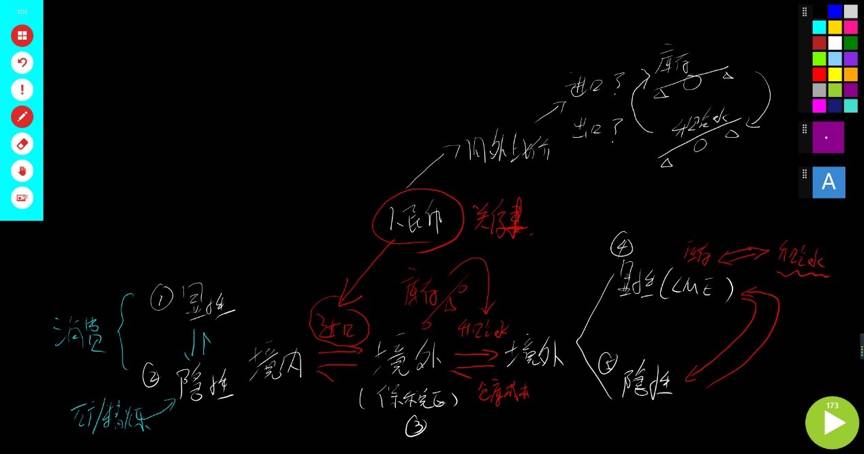 库存
进口？
出口？
升贴水
内外比价
人民币
关停
④
显性(LME)
库存
升贴水
①显性
进口
库存
升贴水
消费
②隐性
境内
境外
境外
(保税区)
③
仓库成本
⑤
隐性
173
A